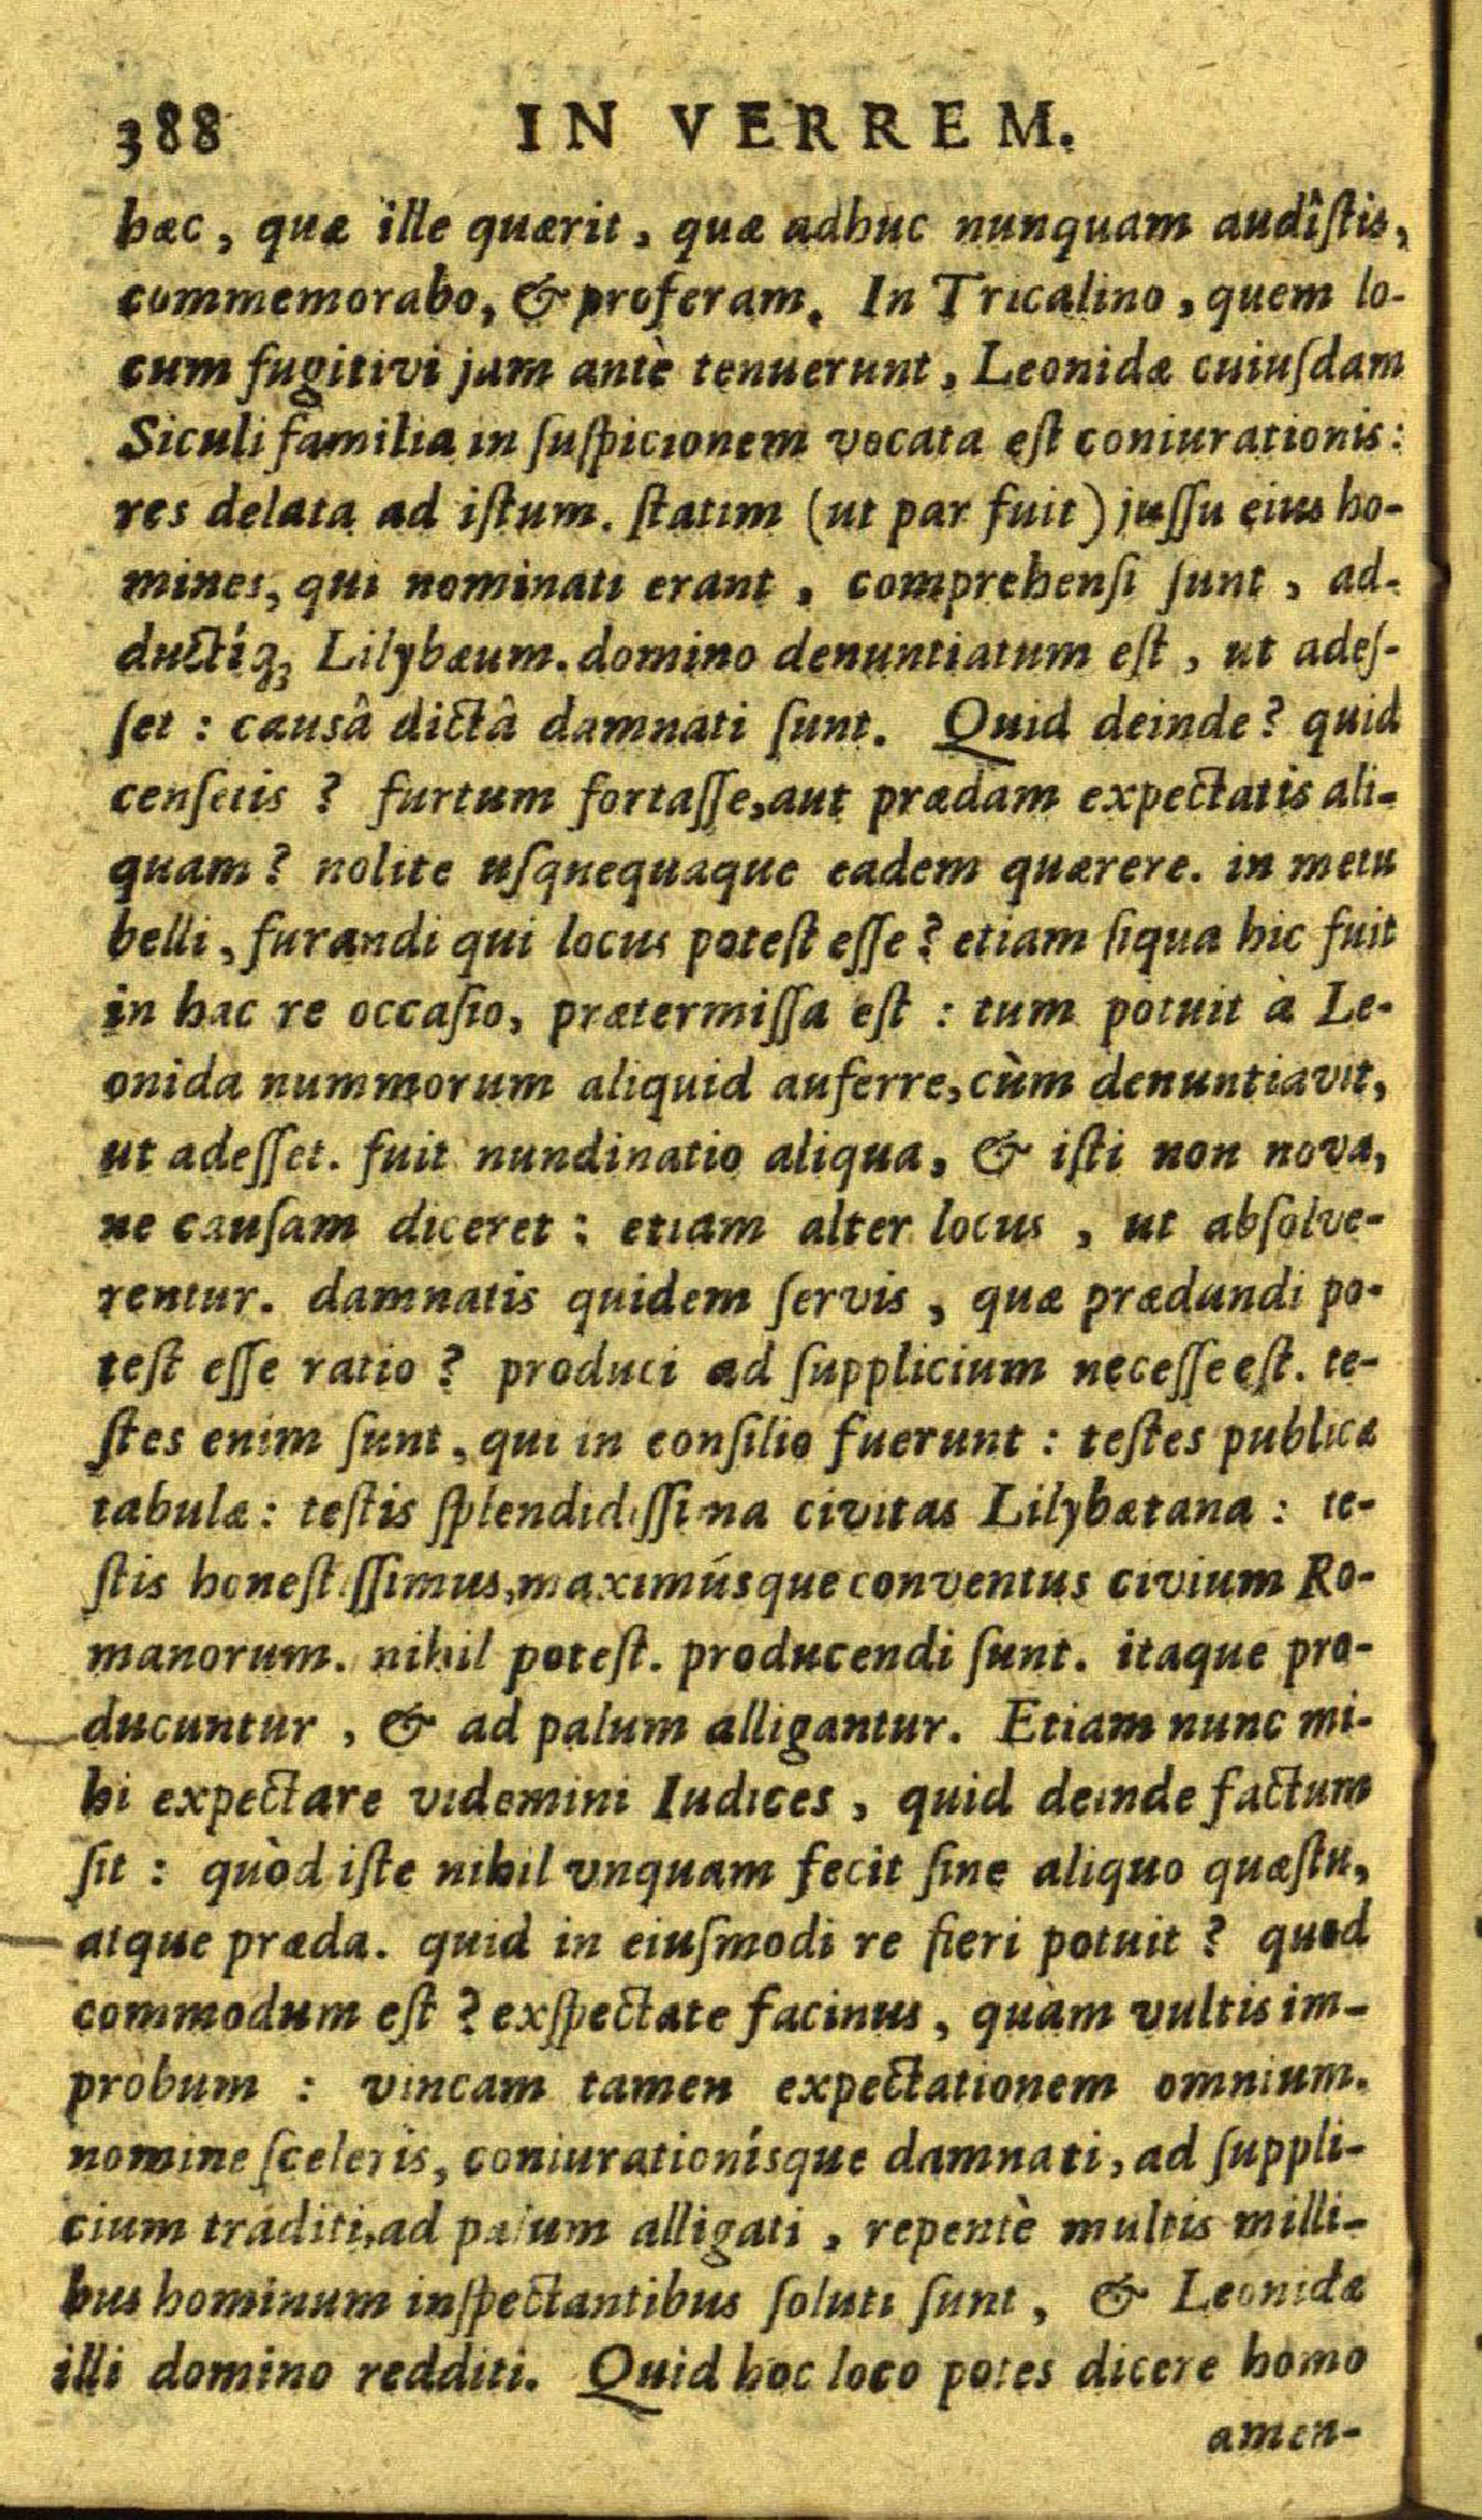 388 IN VERREM.
hæc, quæ ille quærit, quæ adhuc nunquam audîſtis,
commemorabo, & proferam. In Tricalino, quem lo-
cum fugitivi jam antè tenuerunt, Leonidæ cuiuſdam
Siculi familia in ſuſpicionem vocata eſt coniurationis:
res delata ad iſtum. ſtatim (ut par fuit) juſſu eius ho-
mines, qui nominati erant, comprehenſi ſunt, ad-
ductíq; Lilybæum. domino denuntiatum eſt, ut adeſ-
ſet : causâ dictâ damnati ſunt. Quid deinde? quid
cenſetis ? furtum fortaſſe, aut prædam expectatis ali-
quam? nolite uſquequaque eadem quærere. in metu
belli, furandi qui locus poteſt eſſe? etiam ſiqua hic fuit
in hac re occaſio, prætermiſſa eſt : tum potuit à Le-
onida nummorum aliquid auferre, cùm denuntiavit,
ut adeſſet. fuit nundinatio aliqua, & iſti non nova,
ne cauſam diceret : etiam alter locus, ut abſolve-
rentur. damnatis quidem ſervis, quæ prædandi po-
teſt eſſe ratio ? produci ad ſupplicium neceſſe eſt. te-
ſtes enim ſunt, qui in conſilio fuerunt : teſtes publicæ
tabulæ: teſtis ſplendidiſſima civitas Lilybætana : te-
ſtis honeſtiſſimus, maximúsque conventus civium Ro-
manorum. nihil poteſt. producendi ſunt. itaque pro-
ducuntur, & ad palum alligantur. Etiam nunc mi-
hi expectare videmini Iudices, quid deinde factum
ſit : quòd iſte nihil vnquam fecit ſine aliquo quæſtu,
atque præda. quid in eiuſmodi re fieri potuit ? quod
commodum eſt ? exſpectate facinus, quàm vultis im-
probum : vincam tamen expectationem omnium.
nomine ſceleris, coniurationísque damnati, ad ſuppli-
cium traditi, ad palum alligati, repentè multis milli-
bus hominum inſpectantibus ſoluti ſunt, & Leonidæ
illi domino redditi. Quid hoc loco potes dicere homo
amen-